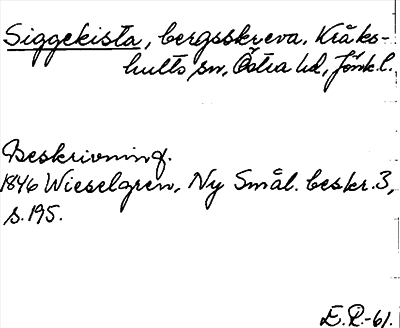 Siggekista, bergsskreva. Kråks-
hults sn, Östra hd, Jönk. l.
Beskrivning.
1846 Wieselgren, Ny Smål. beskr. 3,
s. 195.
E.R.-61.